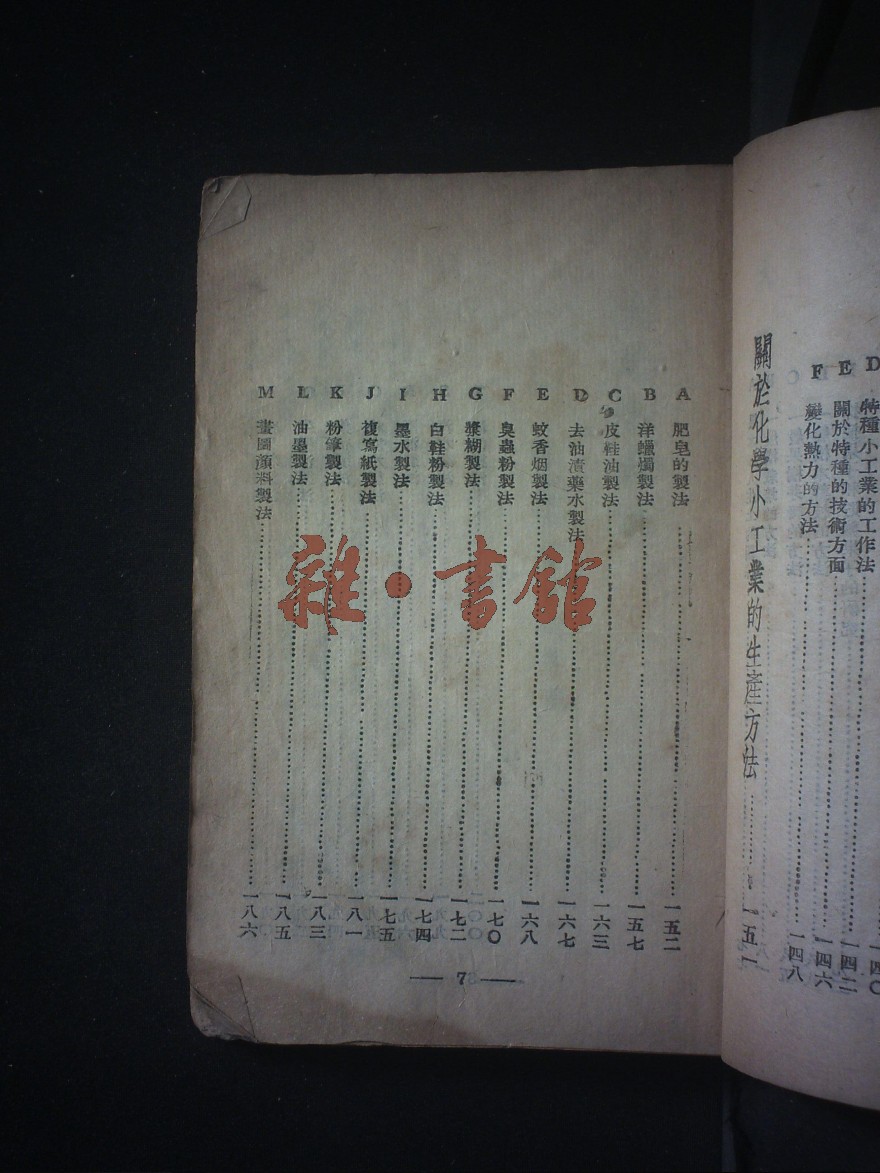 D 特種小工業的工作法……一四二
E 關於特種的技術方面……一四六
F 變化熱力的方法……一四八
關於化學小工業的生產方法……一五一
A 肥皂的製法……一五二
B 洋蠟燭製法……一五七
C 皮鞋油製法……一六三
D 去油漬藥水製法……一六七
E 蚊香烟製法……一六八
F 臭蟲粉製法……一七〇
G 漿糊製法……一七二
H 白鞋粉製法……一七四
I 墨水製法……一七五
J 複寫紙製法……一八一
K 粉筆製法……一八三
L 油墨製法……一八五
M 畫圖顏料製法……一八六
— 7 —
雜·書館